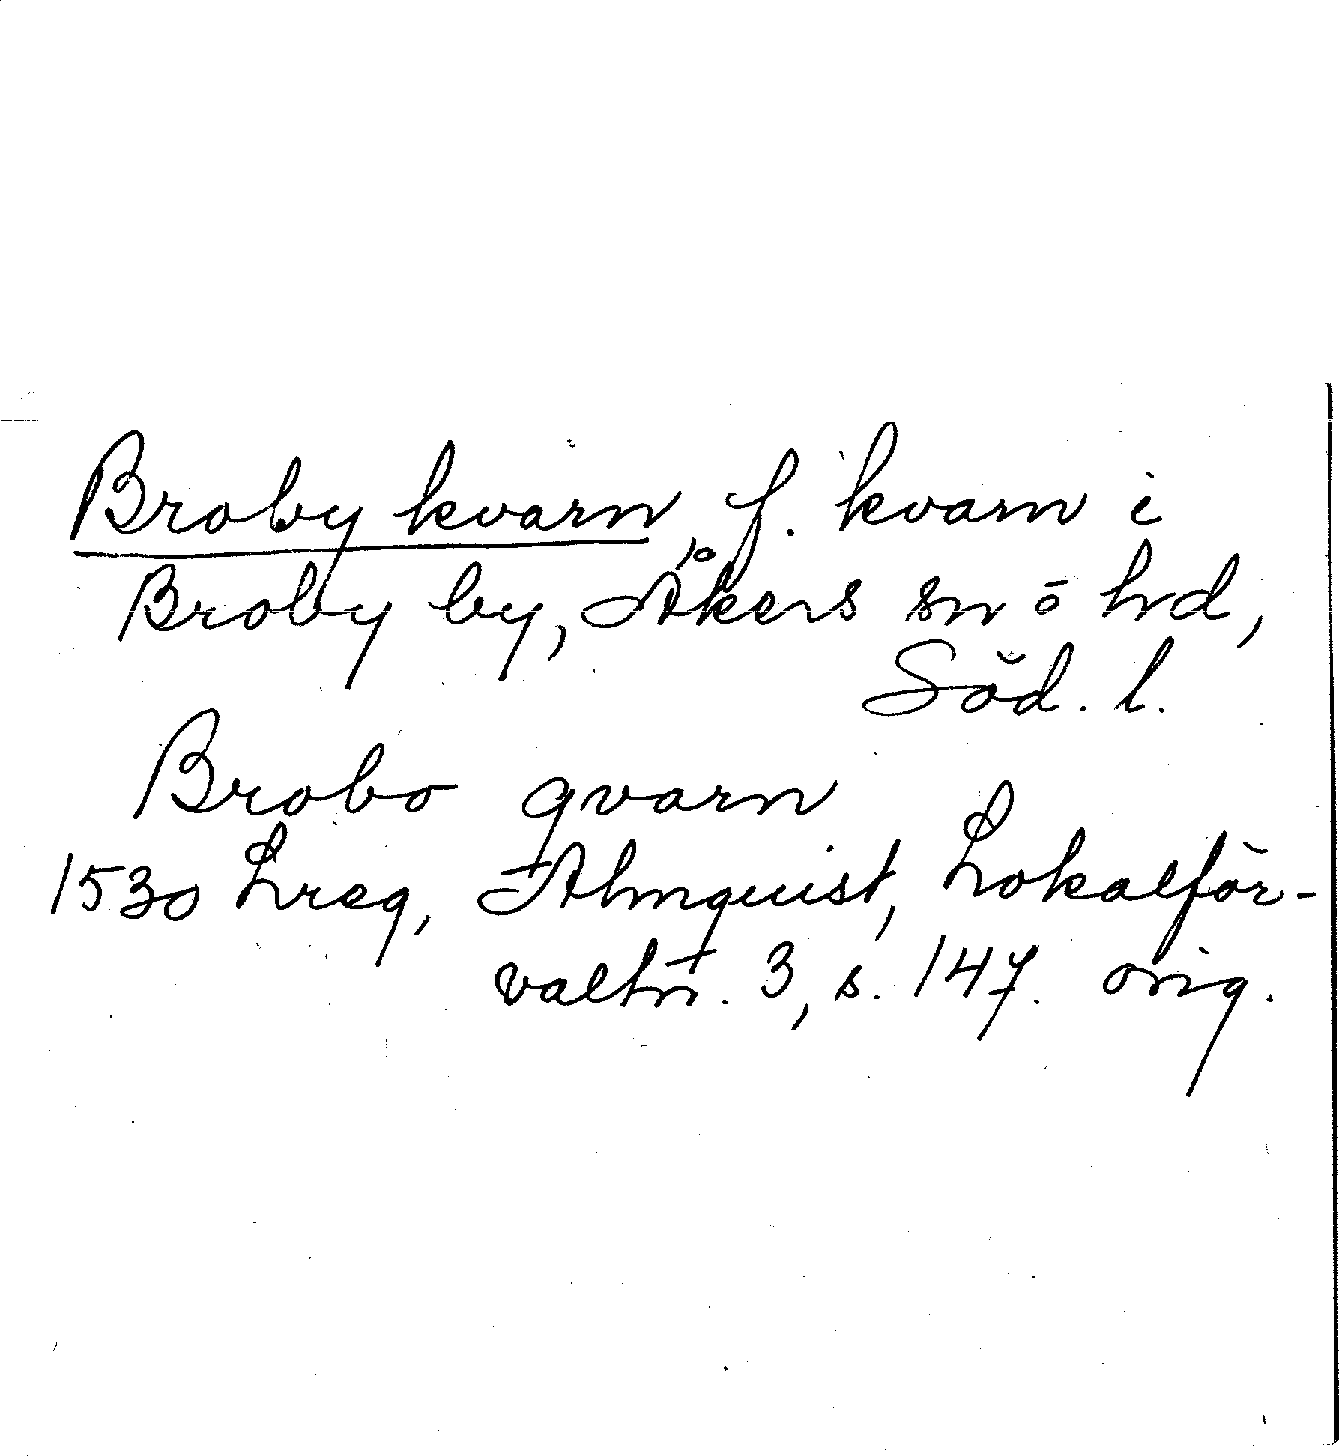 Broby kvarn, f. kvarn i
Broby by, Åkers sn o hd,
Söd. l.
Brobo qvarn
1530 Lreg, Almquist, Lokalför-
valtn. 3, s. 147. orig.